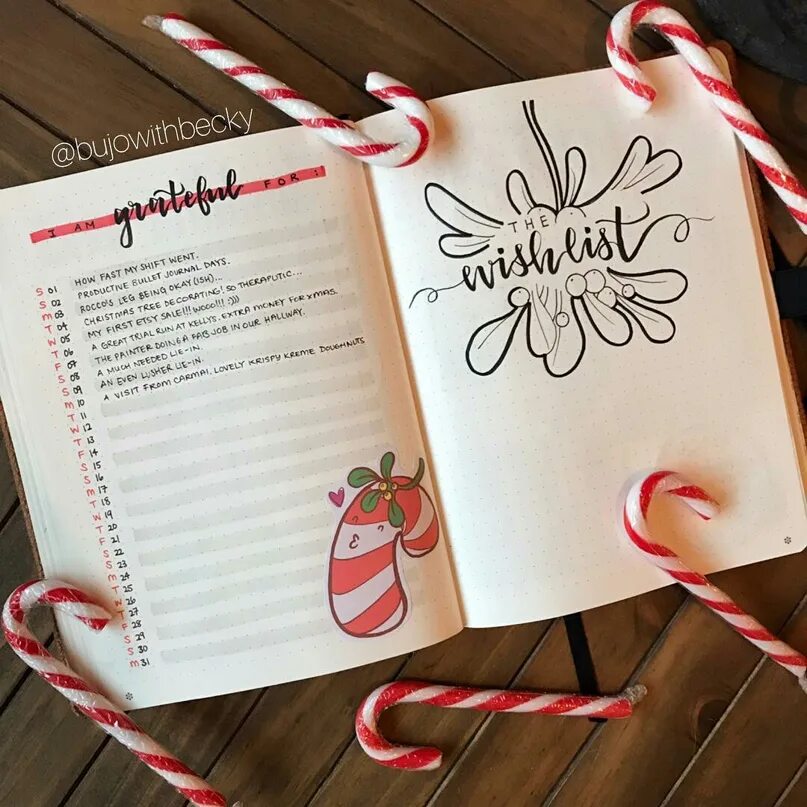 @bujowithbecky
I AM grateful FOR:
S 01 HOW FAST MY SHIFT WENT.
S 02 PRODUCTIVE BULLET JOURNAL DAYS.
M 03 ROCCO'S LEG BEING OKAY (ISH)...
T 04 CHRISTMAS TREE DECORATING! SO THERAPUTIC...
W 05 MY FIRST ETSY SALE!!! WOOO!!! :)))
T 06 A GREAT TRIAL RUN AT KELLYS. EXTRA MONEY FOR XMAS.
F 07 THE PAINTER DOING A FAB JOB IN OUR HALLWAY.
S 08 A MUCH NEEDED LIE-IN.
S 09 AN EVEN LUSHER LIE-IN.
M 10 A VISIT FROM CARMAI. LOVELY KRISPY KREME DOUGHNUTS
T 11
W 12
T 13
F 14
S 15
S 16
M 17
T 18
W 19
T 20
F 21
S 22
S 23
M 24
T 25
W 26
T 27
F 28
S 29
S 30
M 31
THE
wish list